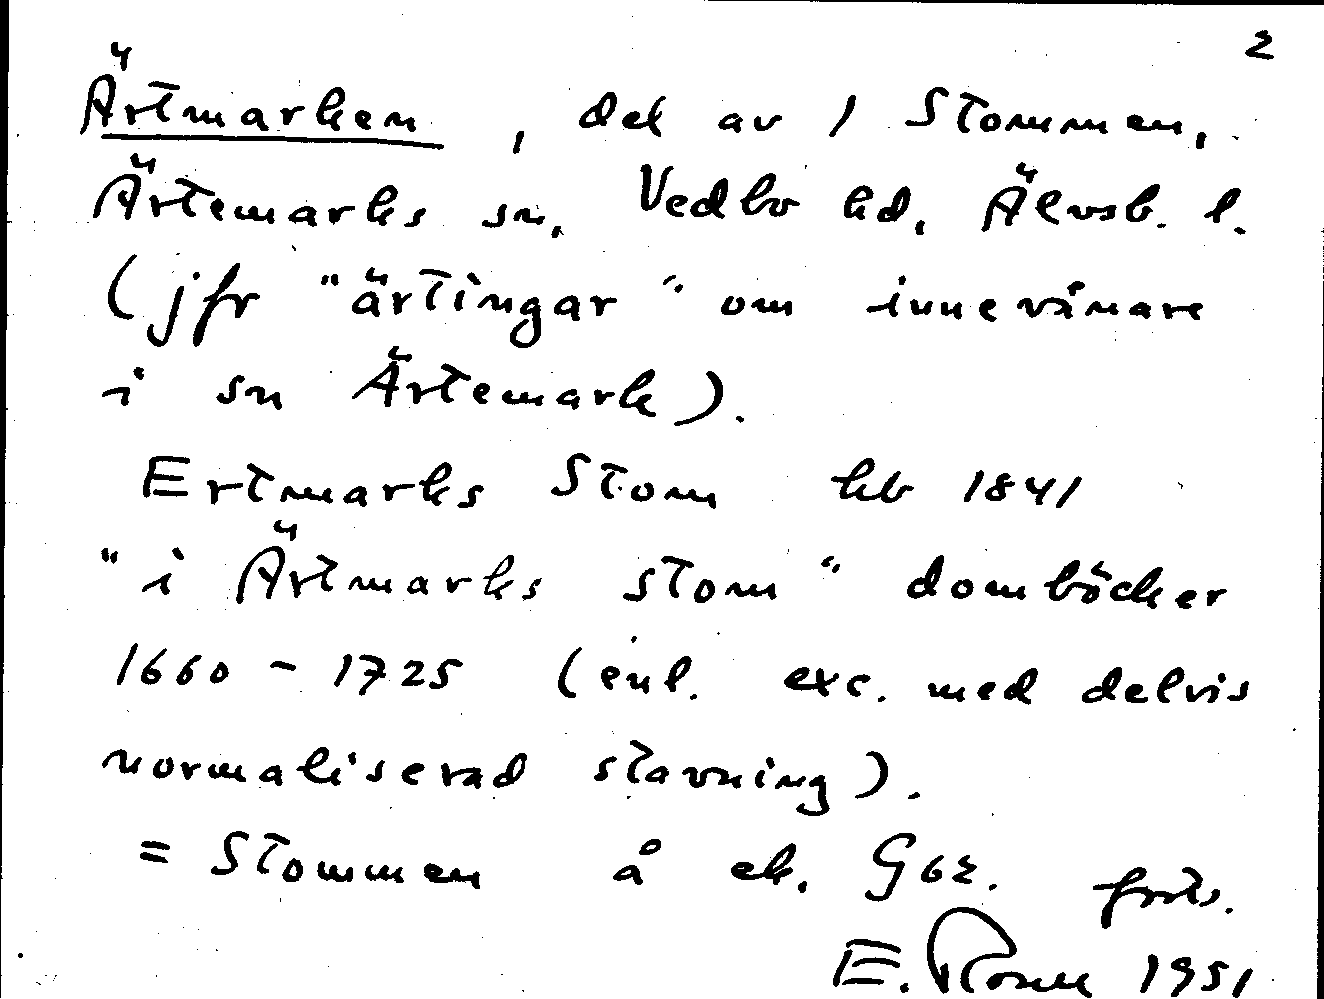 2
Ärtmarken, del av 1 Stommen,
Ärtemarks sn, Vedbo hd, Älvsb. l.
(jfr "ärtingar" om innevånare
i sn Ärtemark).
Ertmarks Stom hb 1841
"i Ärtmarks stom" domböcker
1660 - 1725 (enl. exc. med delvis
normaliserad stavning).
= Stommen å ek. G62. forts.
E. 1951